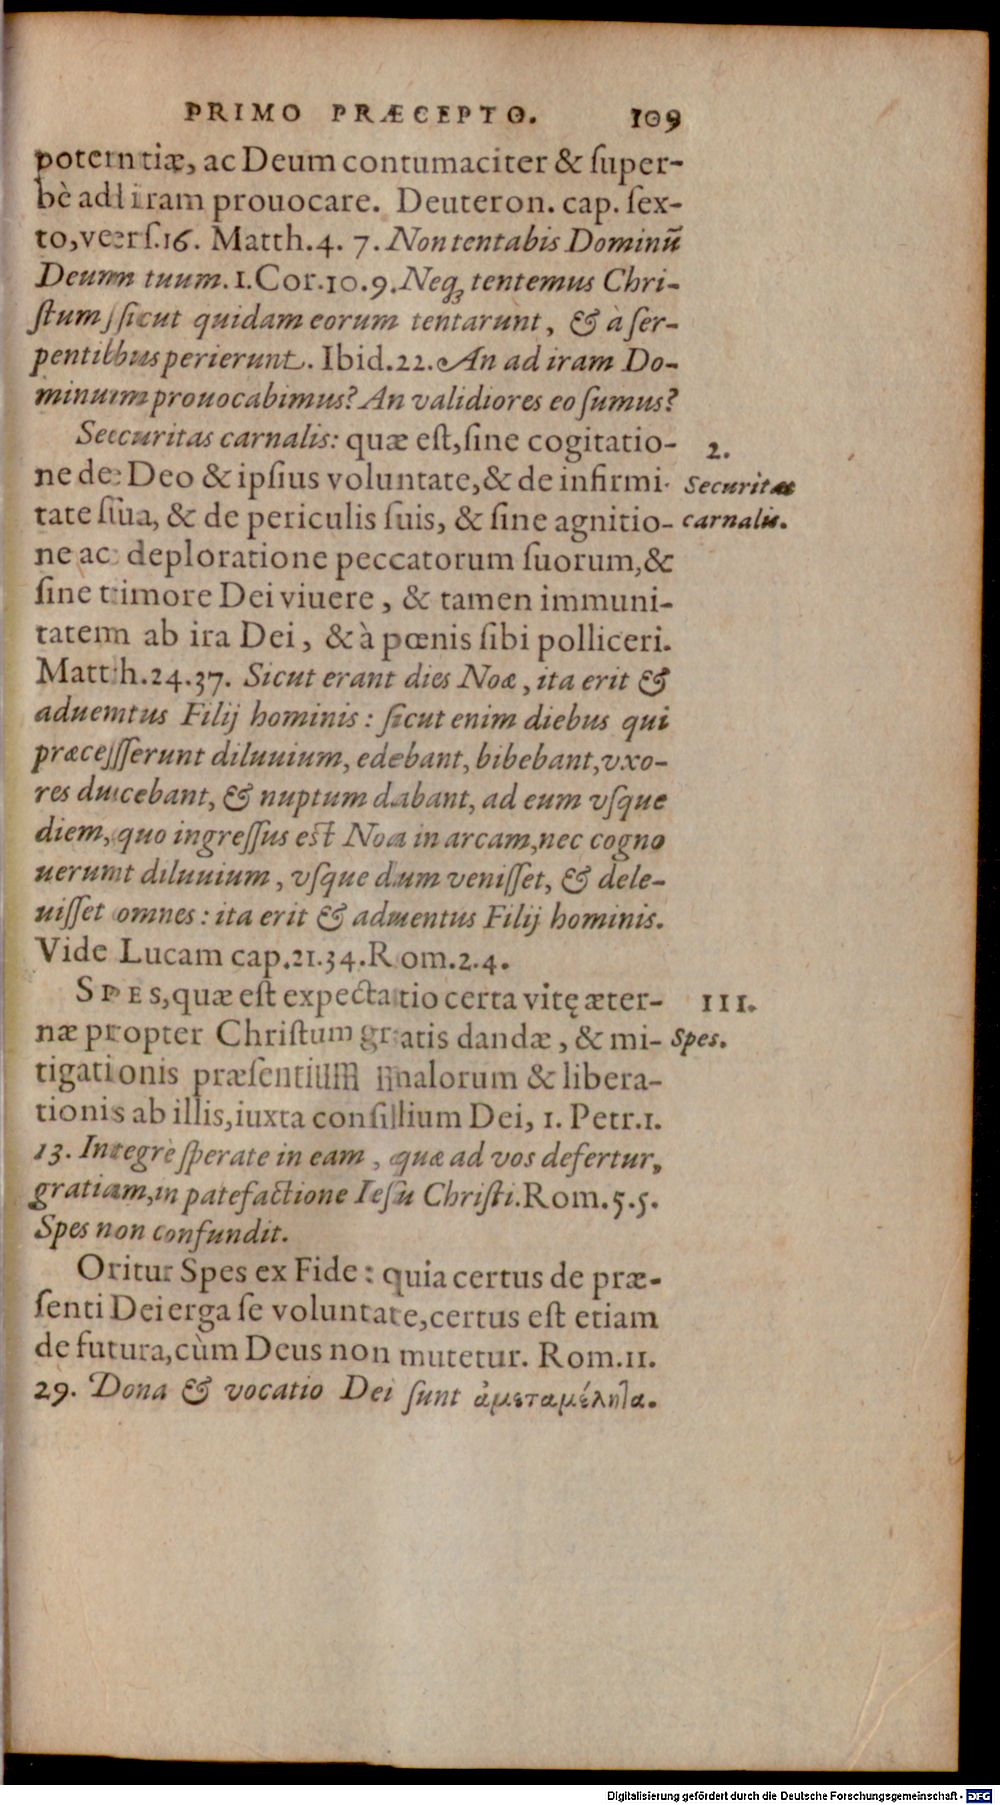 PRIMO PRÆCEPTO. 109
potentiæ, ac Deum contumaciter & ſuper-
bè ad iram prouocare. Deuteron. cap. ſex-
to, verſ.16. Matth.4. 7. Non tentabis Dominũ
Deum tuum. 1.Cor.10.9. Neq́; tentemus Chri-
ſtum, ſicut quidam eorum tentarunt, & à ſer-
pentibus perierunt. Ibid.22. An ad iram Do-
minum prouocabimus? An validiores eo ſumus?
Securitas carnalis: quæ eſt, ſine cogitatio-
2.
ne de Deo & ipſius voluntate, & de infirmi-
Securitas
tate ſua, & de periculis ſuis, & ſine agnitio-
carnalis.
ne ac deploratione peccatorum ſuorum, &
ſine timore Dei viuere, & tamen immuni-
tatem ab ira Dei, & à pœnis ſibi polliceri.
Matth.24.37. Sicut erant dies Noæ, ita erit &
aduentus Filij hominis: ſicut enim diebus qui
præceſſerunt diluuium, edebant, bibebant, vxo-
res ducebant, & nuptum dabant, ad eum vſque
diem, quo ingreſſus eſt Noa in arcam, nec cogno
uerunt diluuium, vſque dum veniſſet, & dele-
uiſſet omnes: ita erit & aduentus Filij hominis.
Vide Lucam cap.21.34. Rom.2.4.
SPES, quæ eſt expectatio certa vitę æter-
III.
næ propter Chriſtum gratis dandæ, & mi-
Spes.
tigationis præſentium malorum & libera-
tionis ab illis, iuxta conſilium Dei, 1. Petr.1.
13. Integrè ſperate in eam, quæ ad vos defertur,
gratiam, in patefactione Ieſu Chriſti. Rom.5.5.
Spes non confundit.
Oritur Spes ex Fide: quia certus de præ-
ſenti Dei erga ſe voluntate, certus eſt etiam
de futura, cùm Deus non mutetur. Rom.11.
29. Dona & vocatio Dei ſunt ἀμεταμέλητα.
Digitalisierung gefördert durch die Deutsche Forschungsgemeinschaft - DFG